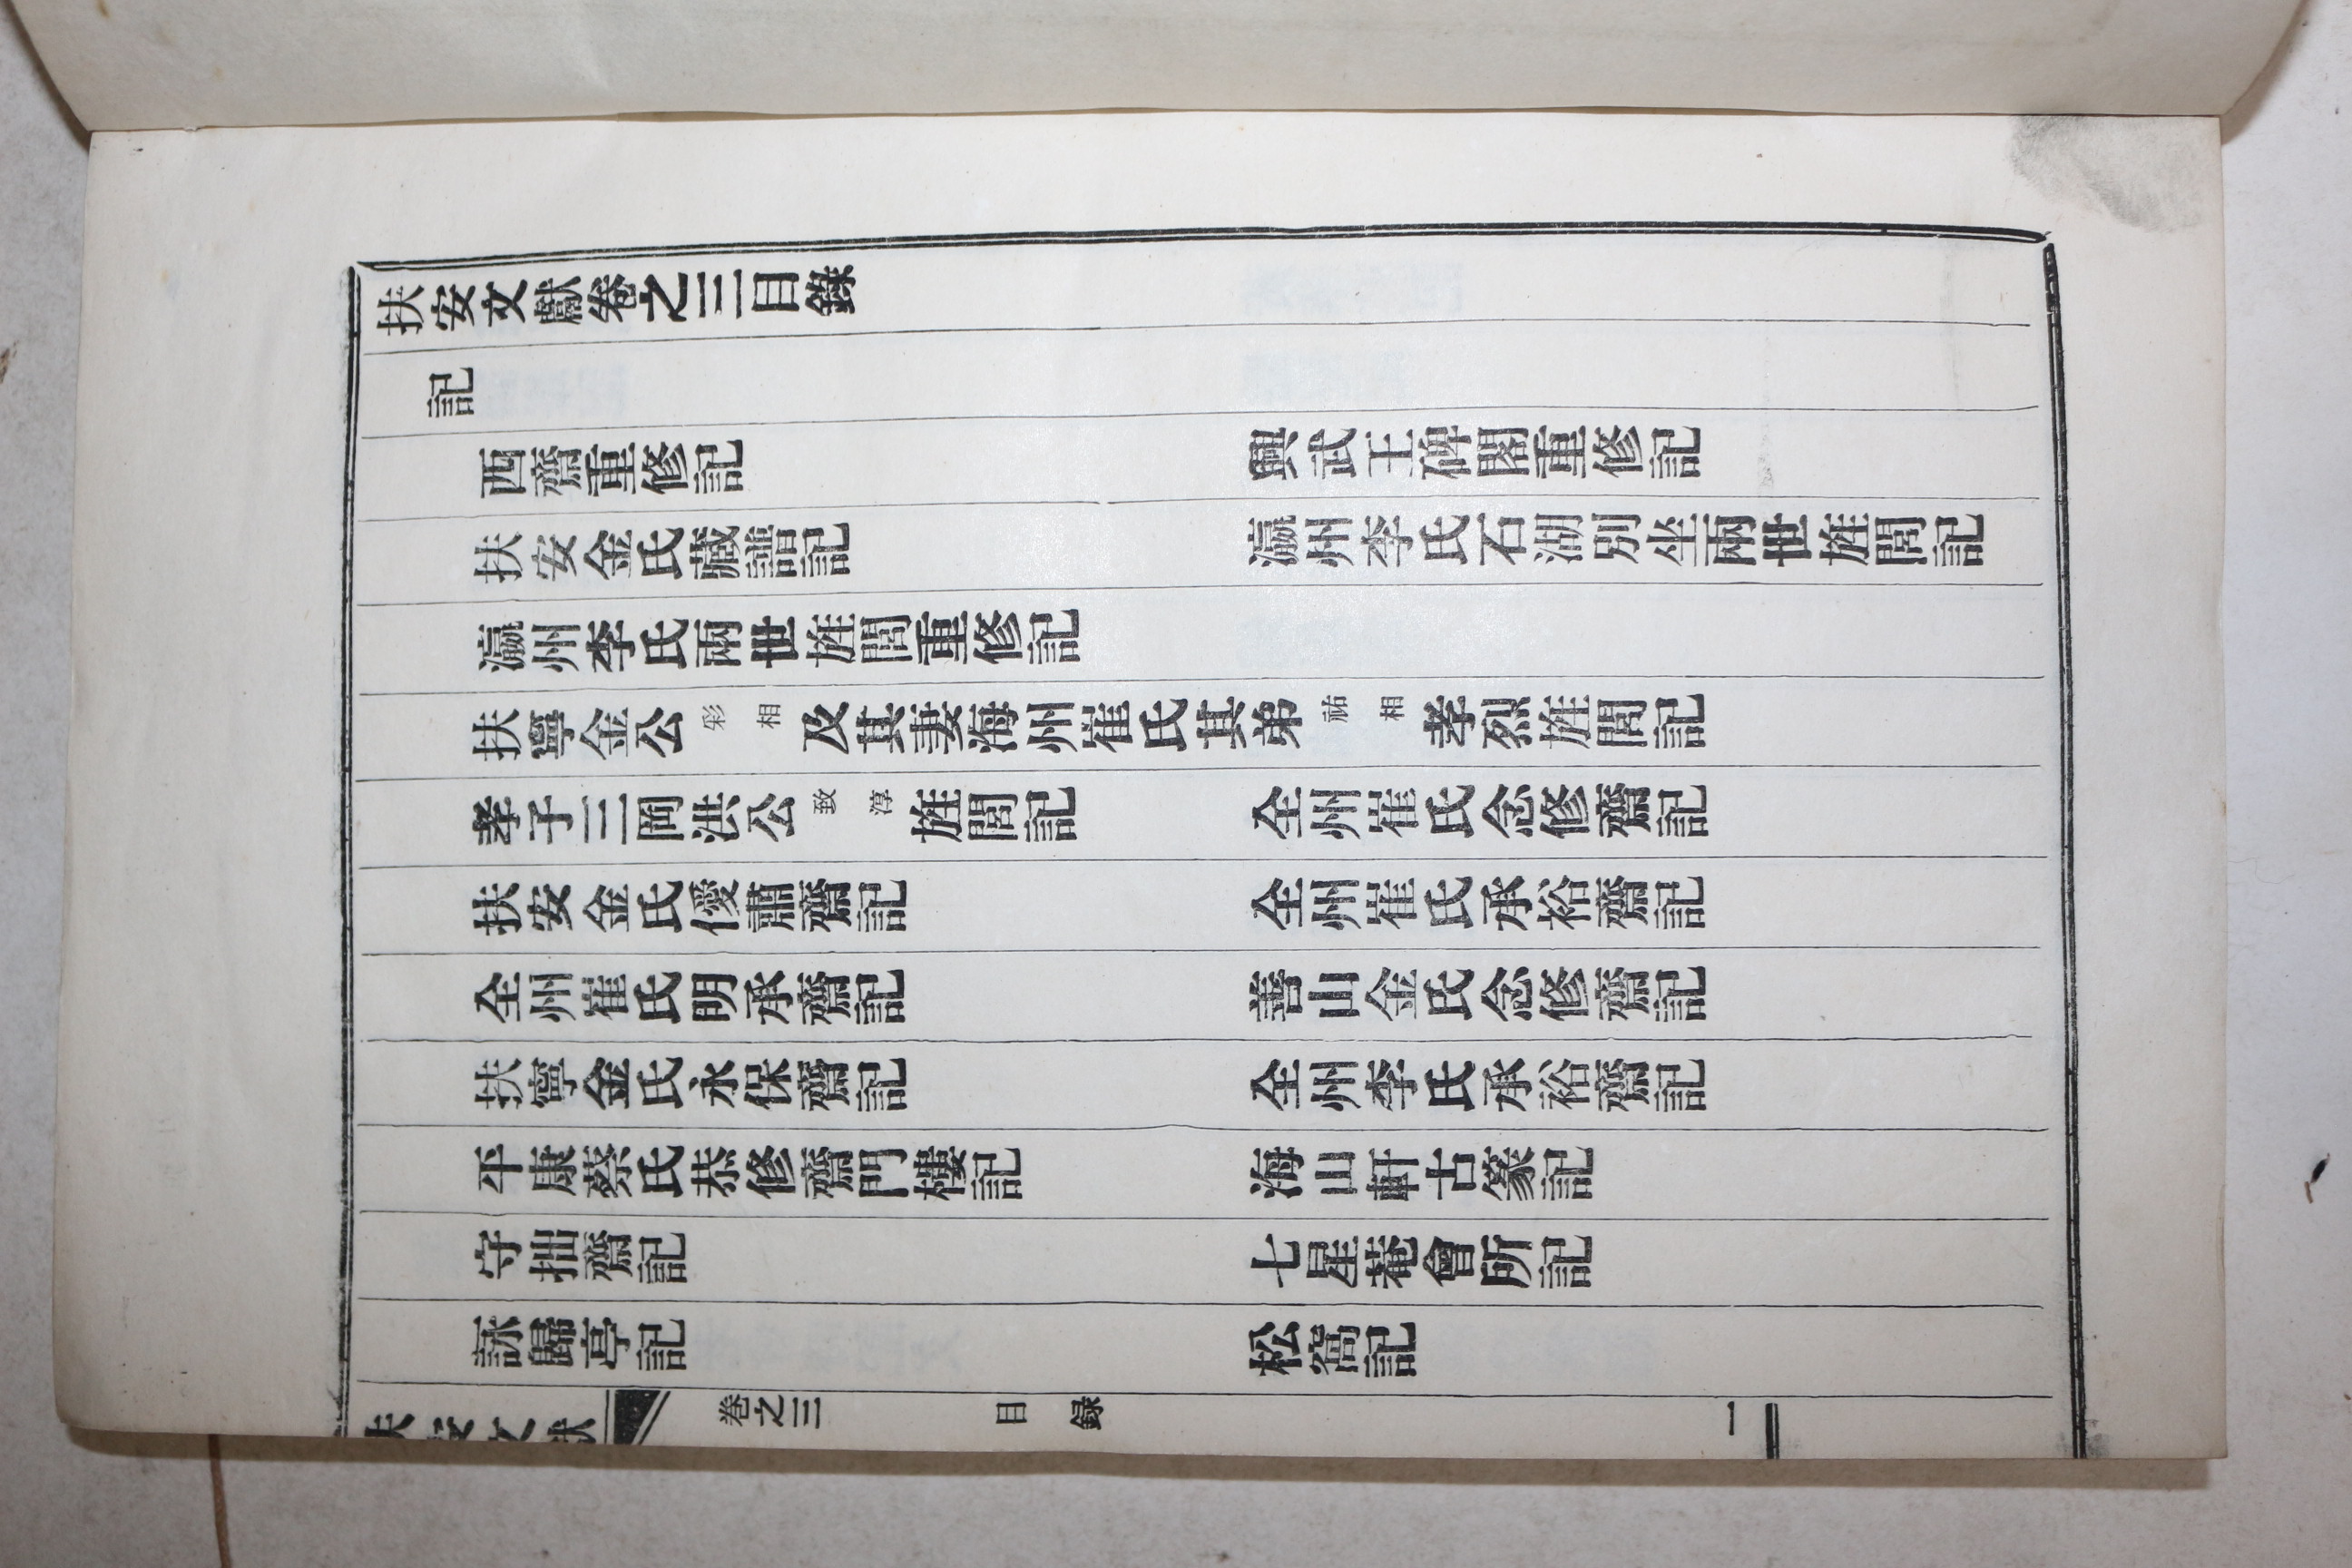 扶安文獻卷之三目錄
記
西齋重修記 興武王碑閣重修記
扶安金氏藏譜記 瀛州李氏石湖別坐兩世旌閭記
瀛州李氏兩世旌閭重修記
扶寧金公彩相及其妻海州崔氏其弟祐相孝烈旌閭記
孝子三岡洪公致淳旌閭記 全州崔氏念修齋記
扶安金氏僾肅齋記 全州崔氏承裕齋記
全州崔氏明承齋記 善山金氏念修齋記
扶寧金氏永保齋記 全州李氏承裕齋記
平康蔡氏恭修齋門樓記 海山軒古篆記
守拙齋記 七星菴會所記
詠歸亭記 松窩記
扶安文獻 卷之三 目 錄 一